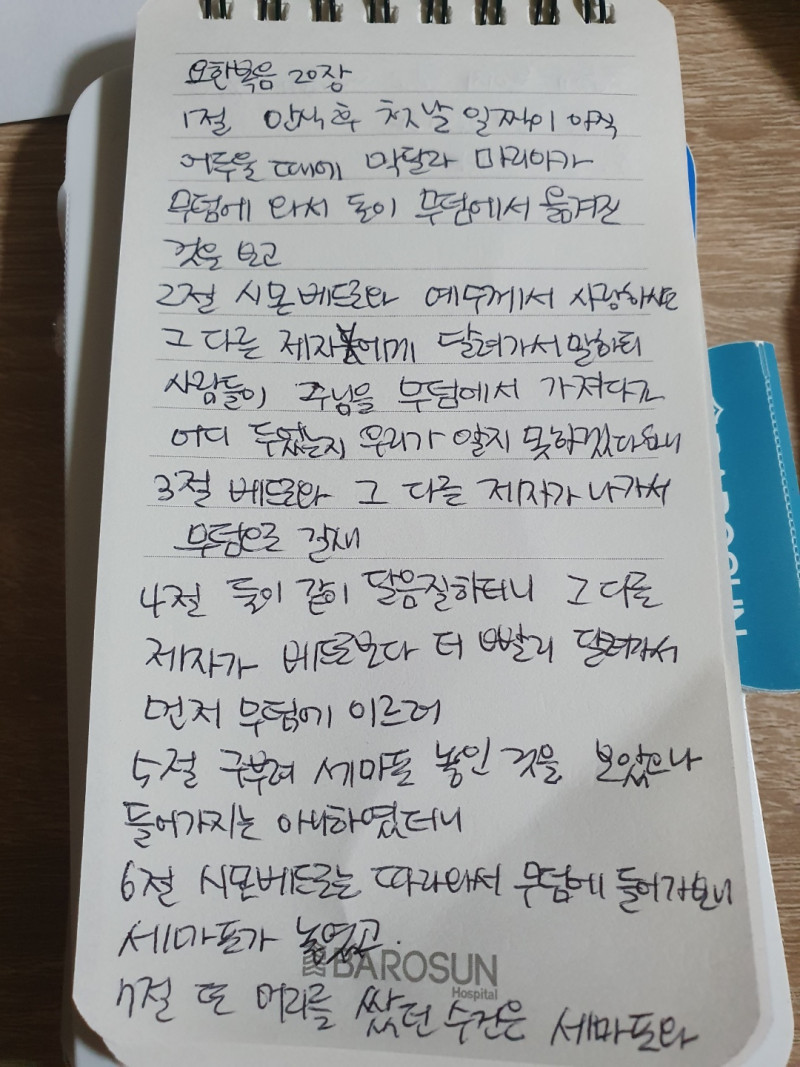 요한복음 20장
1절 안식후 첫날 일찍이 아직
어두울 때에 막달라 마리아가
무덤에 와서 돌이 무덤에서 옮겨진
것을 보고
2절 시몬베드로와 예수께서 사랑하시던
그 다른 제자에게 달려가서 말하되
사람들이 주님을 무덤에서 가져다가
어디 두었는지 우리가 알지 못하겠다하니
3절 베드로와 그 다른 제자가 나가서
무덤으로 갈새
4절 둘이 같이 달음질하더니 그 다른
제자가 베드로보다 더 빨리 달려가서
먼저 무덤에 이르러
5절 구부려 세마포 놓인 것을 보았으나
들어가지는 아니하였더니
6절 시몬베드로는 따라와서 무덤에 들어가보니
세마포가 놓였고
BAROSUN
Hospital
7절 또 머리를 쌌던 수건은 세마포와